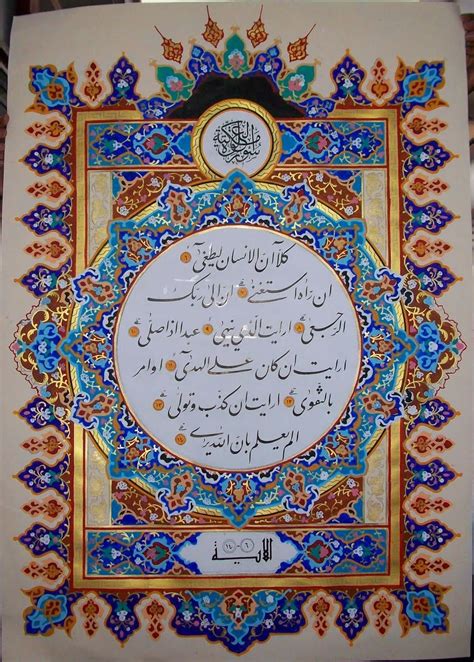 سورة العلق مكية
كلا ان الانسان ليطغى ٦
ان رآه استغنى ٧ ان الى ربك
الرجعى ٨ ارايت الذي ينهى ٩ عبدا اذا صلى ١٠
ارايت ان كان على الهدى ١١ او امر
بالتقوى ١٢ ارايت ان كذب وتولى ١٣
الم يعلم بان الله يرى ١٤
الاية ٦ - ١٤